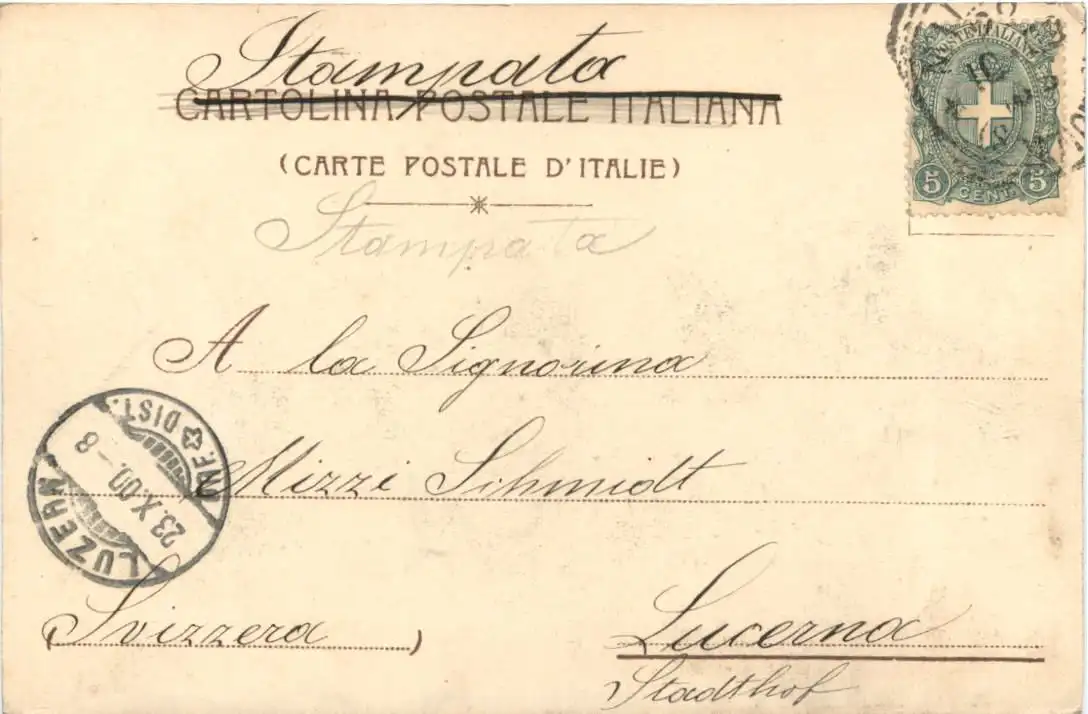 Stampata
CARTOLINA POSTALE ITALIANA
(CARTE POSTALE D'ITALIE)
Stampata
POSTE ITALIANE
5 CENT. 5
A la Signorina
Mizzi Schmidt
LUZERN
23.X.00.-8
DIST.
(Svizzera)
Lucerna
Stadthof